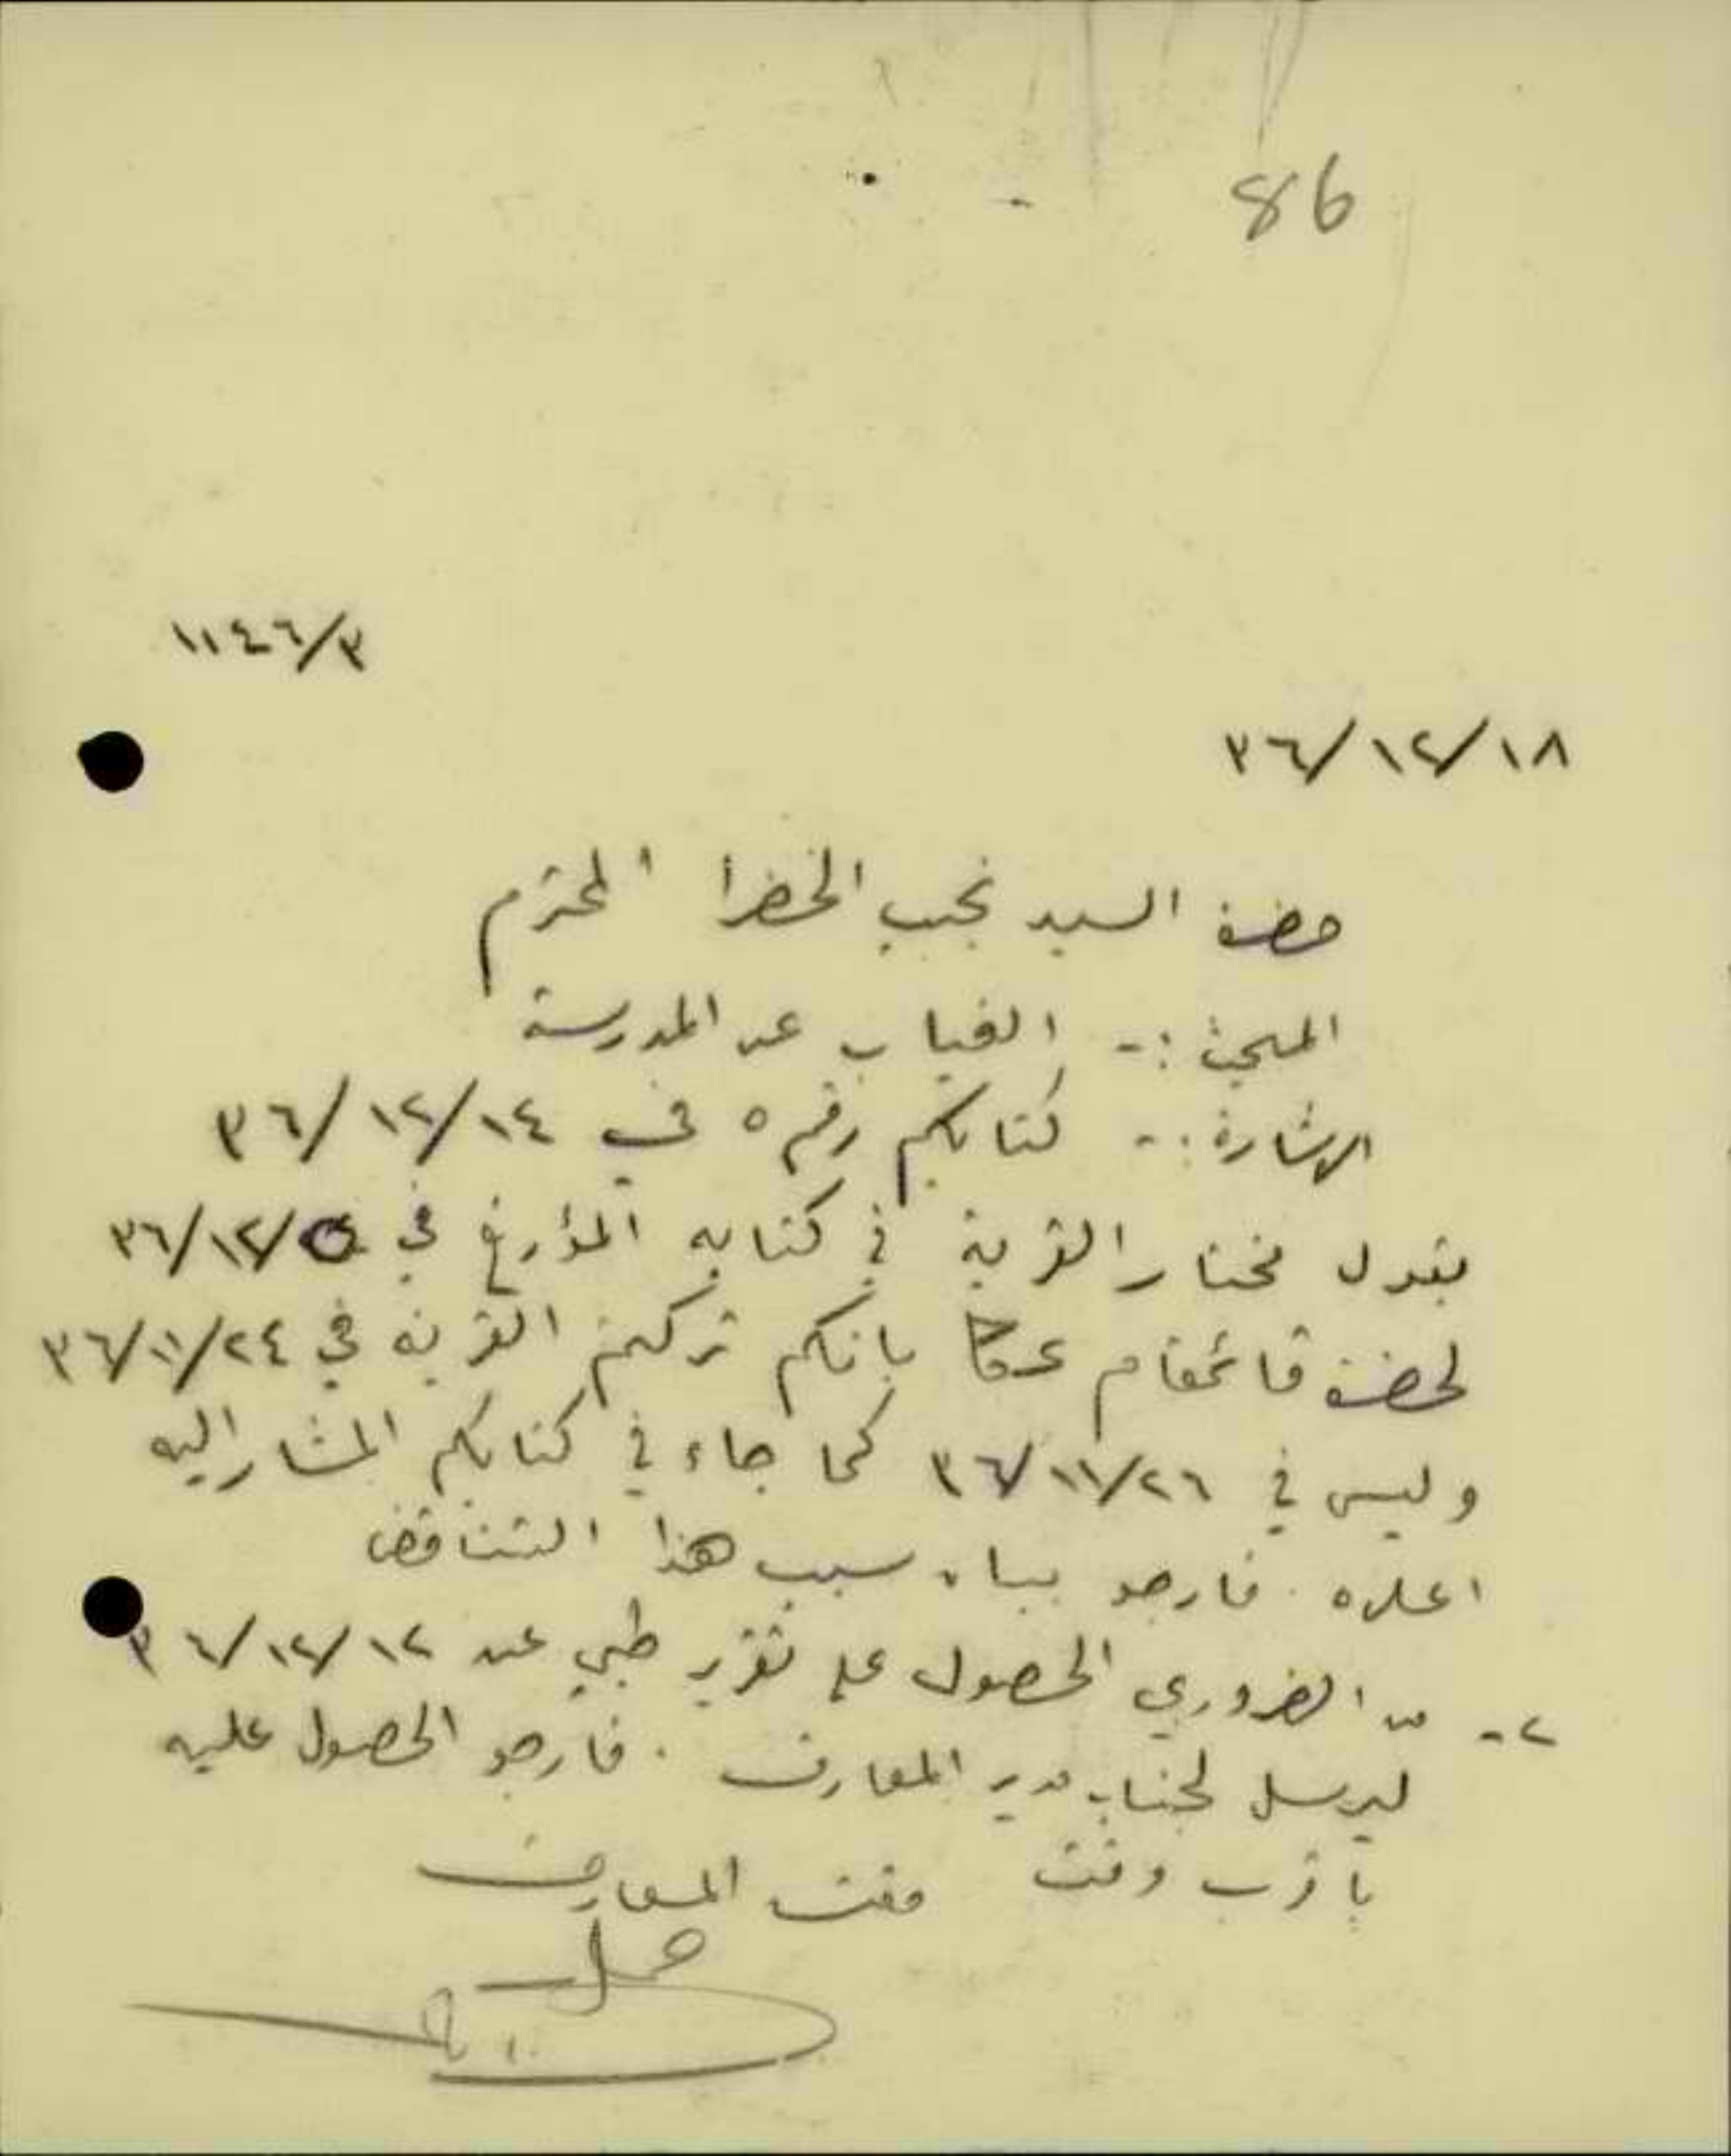 86
١١٤٦/٣
٣٦/١٢/١٨
حضرة السيد نجيب الخضرا المحترم
المبحث :- الغياب عن المدرسة
الاشارة :- كتابكم رقم ٥ في ٣٦/١٢/١٤
يقول مختار القرية في كتابه المؤرخ في ٣٦/١٢/
لحضرة قائمقام عكا بانكم تركتم القرية في ٣٦/١١/٢٤
وليس في ٣٦/١١/٢٦ كما جاء في كتابكم المشار اليه
اعلاه . فارجو بيان سبب هذا التناقض
٢- من الضروري الحصول على تقرير طبي عن ٣٦/١٢/١٢
ليرسل لجناب مدير المعارف . فارجو الحصول عليه
باقرب وقت مفتش المعارف